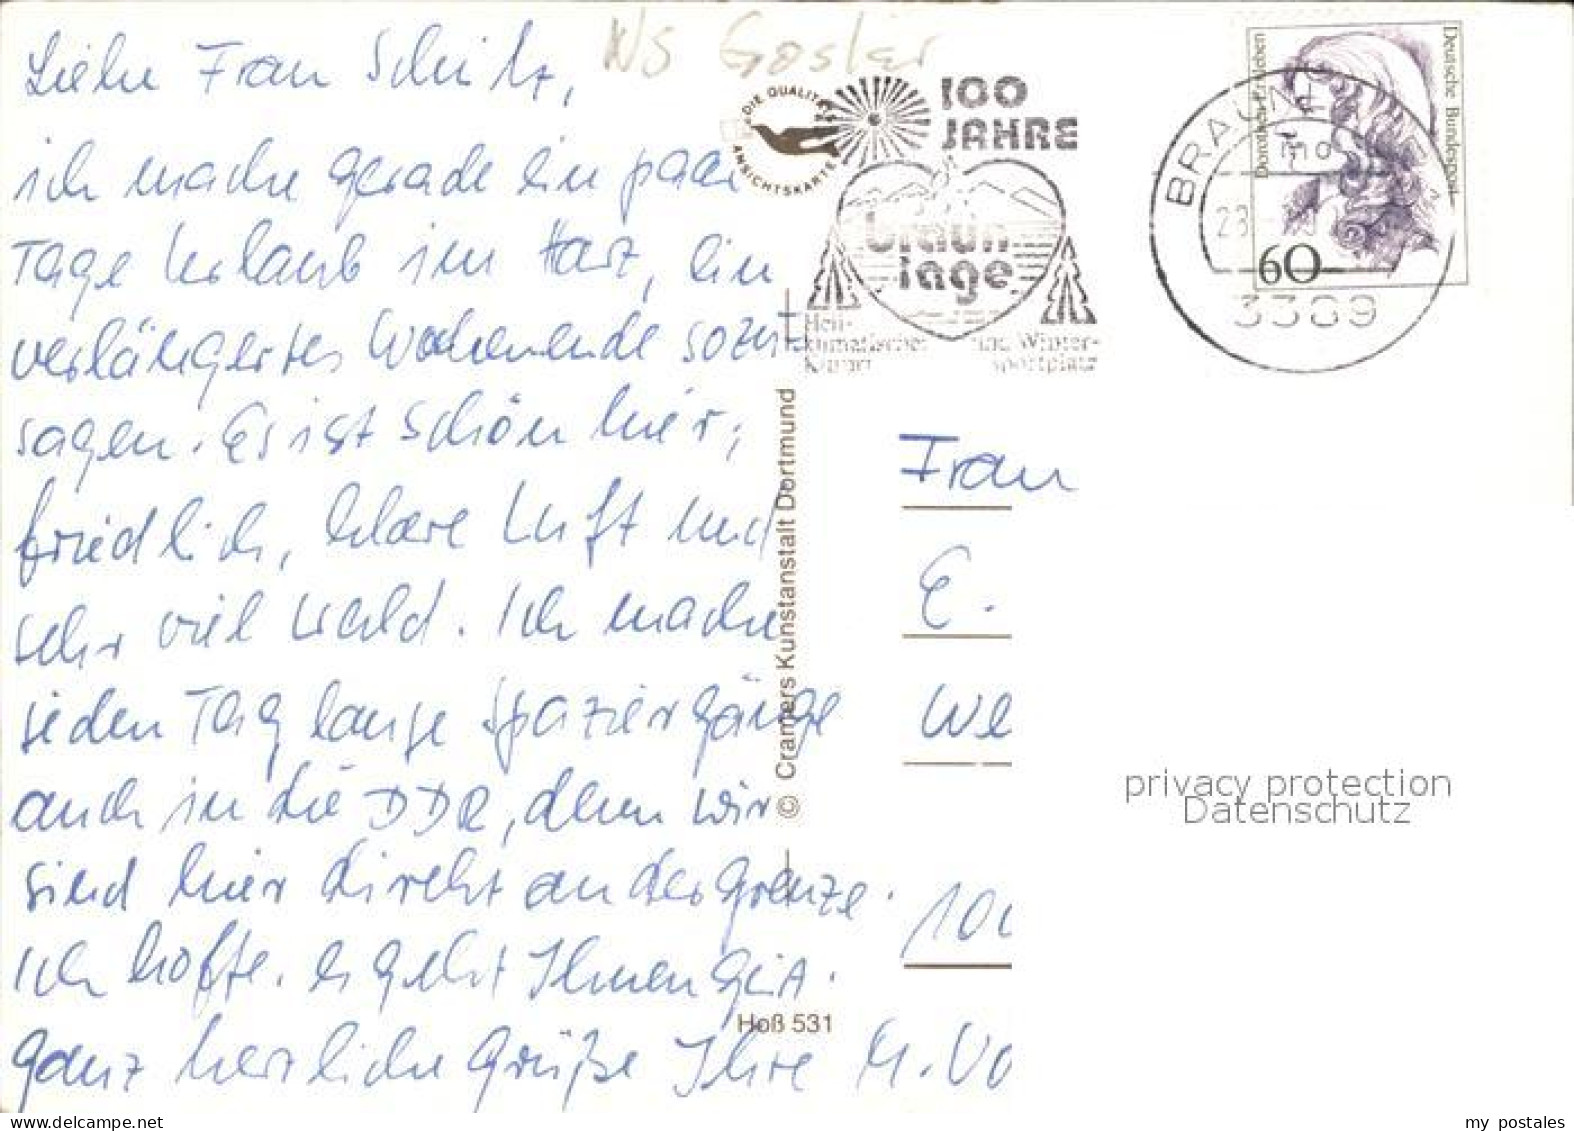 Liebe Frau Schulz,
ich mache gerade ein paar
Tage Urlaub im Harz, ein
verlängertes Wochenende sozu
sagen. Es ist schön hier,
friedlich, klare Luft und
sehr viel Wald. Ich mache
jeden Tag lange Spaziergänge
auch in die DDR, denn wir
sind hier direkt an der Grenze.
Ich hoffe, es geht Ihnen gut.
Ganz herzliche Grüße Ihre M. Vo
WS Goslar
DIE QUALITÄTS
ANSICHTSKARTE
100
JAHRE
braun
lage
Heil-
klimatischer und Winter-
Kurort sportplatz
BRAUN
23
3389
Deutsche Bundespost
Dorothea Erxleben
60
© Cramers Kunstanstalt Dortmund
Hoß 531
Frau
E.
We
100
privacy protection
Datenschutz
www.delcampe.net
my postales